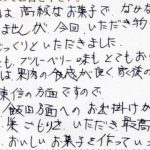 は高級なお菓子で、なかな
ましたが、今回いただき物
っくりといただきました。
も、ブルーベリーはもとてもおい
は果肉の食感が良く最後の
東信の方面ですので
飯田方面へのお出掛けか
巣ごもりでいただき最高
おいしいお菓子を作ってい